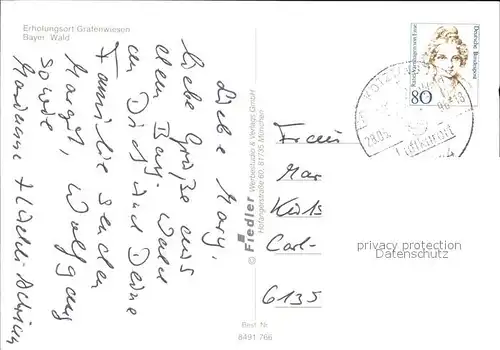 Erholungsort Grafenwiesen
Bayer. Wald
Liebe Mary,
liebe Grüße aus
dem Bay. Wald
an Dich und Deine
Familie senden
Margit, Wolfgang
sowie
Marianne +
© Fiedler Werbestudio & Verlags GmbH
Hofangerstraße 60, 81735 München
Best. Nr.
8491 766
Deutsche Bundespost
80
Luftkurort
Frau
Mar
Carl-
6135
privacy protection
Datenschutz